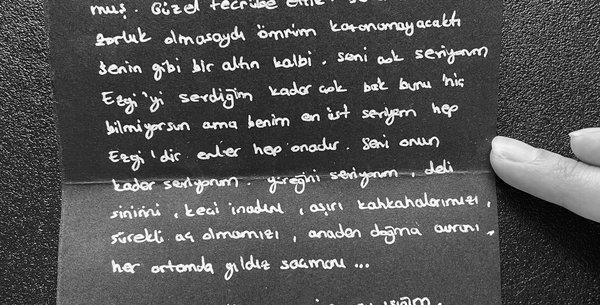 muş. Güzel tecrübe
zorluk olmasaydı ömrüm kazanamayacaktı
senin gibi bir altın kalbi. Seni çok seviyorum
Ezgi'yi sevdiğim kadar çok bak bunu hiç
bilmiyorsun ama benim en üst seviyem hep
Ezgi'dir evler hep onadır. Seni onun
kadar seviyorum. Yüreğini seviyorum, deli
sinirini, keçi inadını, aşırı kahkahalarımızı,
sürekli aç olmamızı, anadan doğma
her ortamda yıldız saçmanı ...